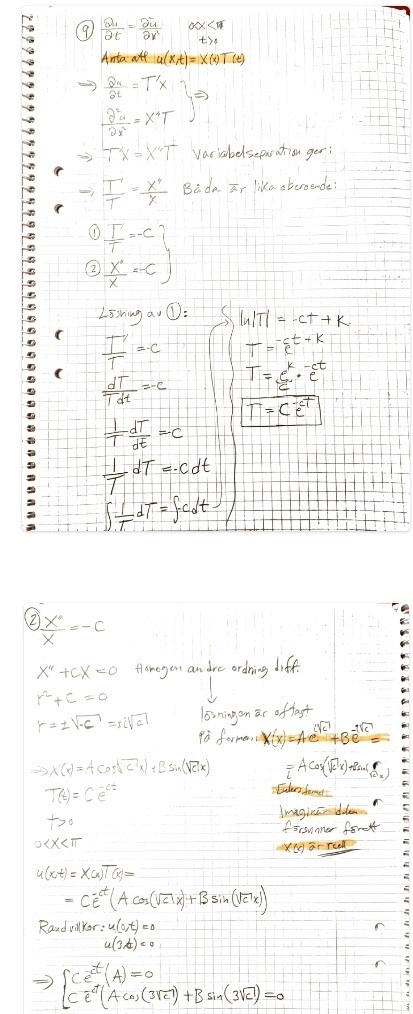 ⑨ ∂u/∂t = ∂²u/∂x² 0<x<π
t>0
Anta att u(x,t) = X(x)T(t)
⇒ ∂u/∂t = T'X
∂²u/∂x² = X''T } ⇒
⇒ T'X = X''T Variabelseparation ger:
⇒ T'/T = X''/X Båda är lika oberoende:
① T'/T = -C
② X''/X = -C
Lösning av ①:
T'/T = -C
dT/Tdt = -C
1/T dT/dt = -C
1/T dT = -C dt
∫ 1/T dT = ∫-C dt
ln|T| = -ct + K
T = e^(-ct+K)
T = e^K · e^(-ct)
T = C e^(-ct)
② X''/X = -C
X'' + CX = 0 Homogen andra ordning diff.
r² + C = 0
r = ±√-C = ±i√C
lösningen är oftast
på formen: X(x) = A e^(i√C) + B e^(-i√C) =
= A cos(√C x) + B sin(√C x)
⇒ X(x) = A cos(√C x) + B sin(√C x)
Eulers formel
T(t) = C e^(-ct)
t>0
0<x<π
Imaginär delen
försvinner för att
X(x) är reell
u(x,t) = X(x)T(t) =
= C e^(-ct) (A cos(√C x) + B sin(√C x))
Randvillkor: u(0,t) = 0
u(3,t) = 0
⇒ { C e^(-ct) (A) = 0
C e^(-ct) (A cos(3√C) + B sin(3√C) = 0